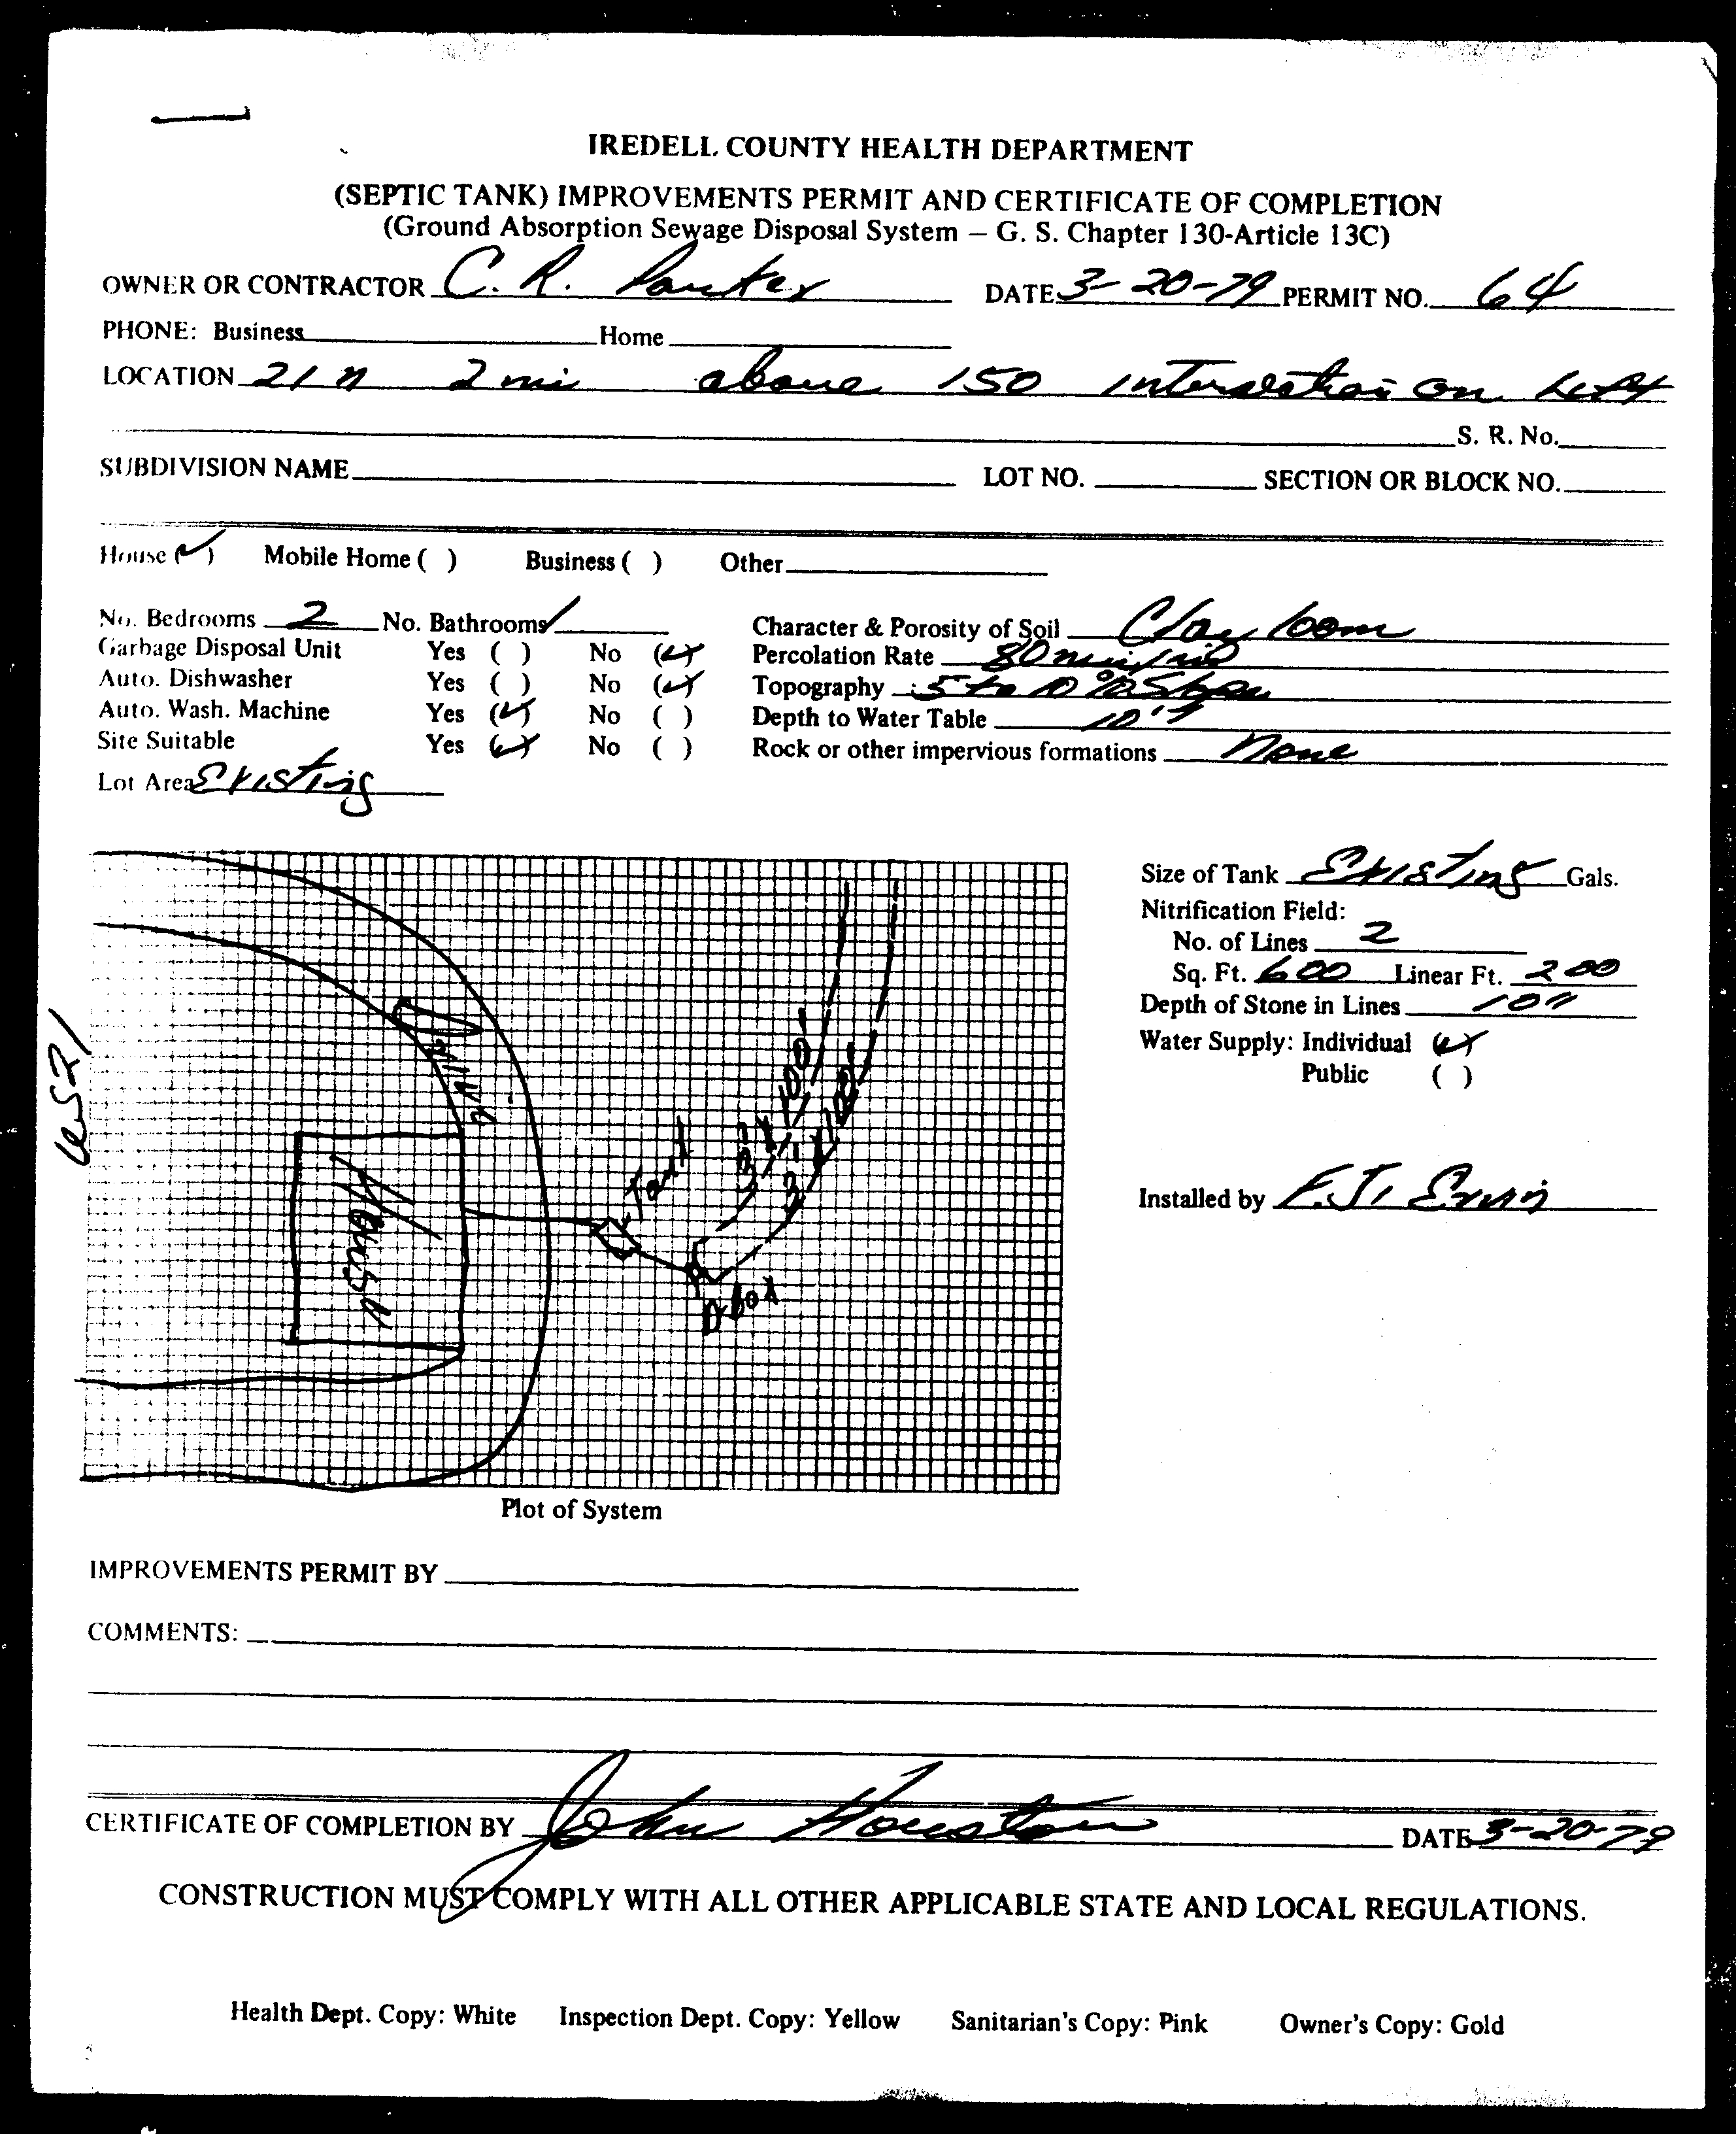 IREDELL COUNTY HEALTH DEPARTMENT
(SEPTIC TANK) IMPROVEMENTS PERMIT AND CERTIFICATE OF COMPLETION
(Ground Absorption Sewage Disposal System – G. S. Chapter 130-Article 13C)
OWNER OR CONTRACTOR C. R. DATE 3-20-79 PERMIT NO. 64
PHONE: Business Home
LOCATION 21 n 2 mi above 150 intersection on left
S. R. No.
SUBDIVISION NAME LOT NO. SECTION OR BLOCK NO.
House (✓) Mobile Home ( ) Business ( ) Other
No. Bedrooms 2 No. Bathrooms 1 Character & Porosity of Soil Clay loom
Garbage Disposal Unit Yes ( ) No (✓) Percolation Rate 80 min/in
Auto. Dishwasher Yes ( ) No (✓) Topography 5 to 10 % Slope
Auto. Wash. Machine Yes (✓) No ( ) Depth to Water Table 10'
Site Suitable Yes (✓) No ( ) Rock or other impervious formations None
Lot Area Existing
Size of Tank Existing Gals.
Nitrification Field:
No. of Lines 2
Sq. Ft. 600 Linear Ft. 200
Depth of Stone in Lines 10"
Water Supply: Individual (✓)
Public ( )
Installed by F.J.
US21
Drive
House
Tank
3' x 100'
3' x 100'
D-Box
Plot of System
IMPROVEMENTS PERMIT BY
COMMENTS:
CERTIFICATE OF COMPLETION BY John Houston DATE 3-20-79
CONSTRUCTION MUST COMPLY WITH ALL OTHER APPLICABLE STATE AND LOCAL REGULATIONS.
Health Dept. Copy: White Inspection Dept. Copy: Yellow Sanitarian's Copy: Pink Owner's Copy: Gold